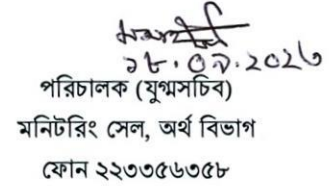 ১৮.০৯.২০২৬
পরিচালক (যুগ্মসচিব)
মনিটরিং সেল, অর্থ বিভাগ
ফোন ২২৩৩৫৬৩৫৮